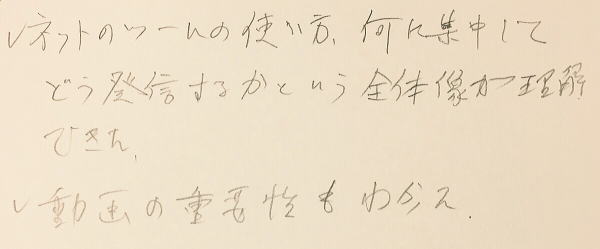 ✓ネットのツールの使い方、何に集中して
どう発信するかという全体像が理解
できた。
✓動画の重要性もわかった。